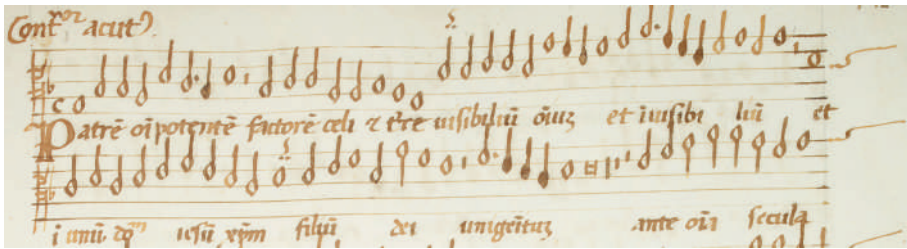 Cont̄ꝛ acutꝰ.
Patrē oīpotentē factorē celi ⁊ t̄re uisibiliū oīuꝫ et īuisibi liū et
ī unū dn̄m iesū xp̄m filiū dei unigenituꝫ ante oīa secula